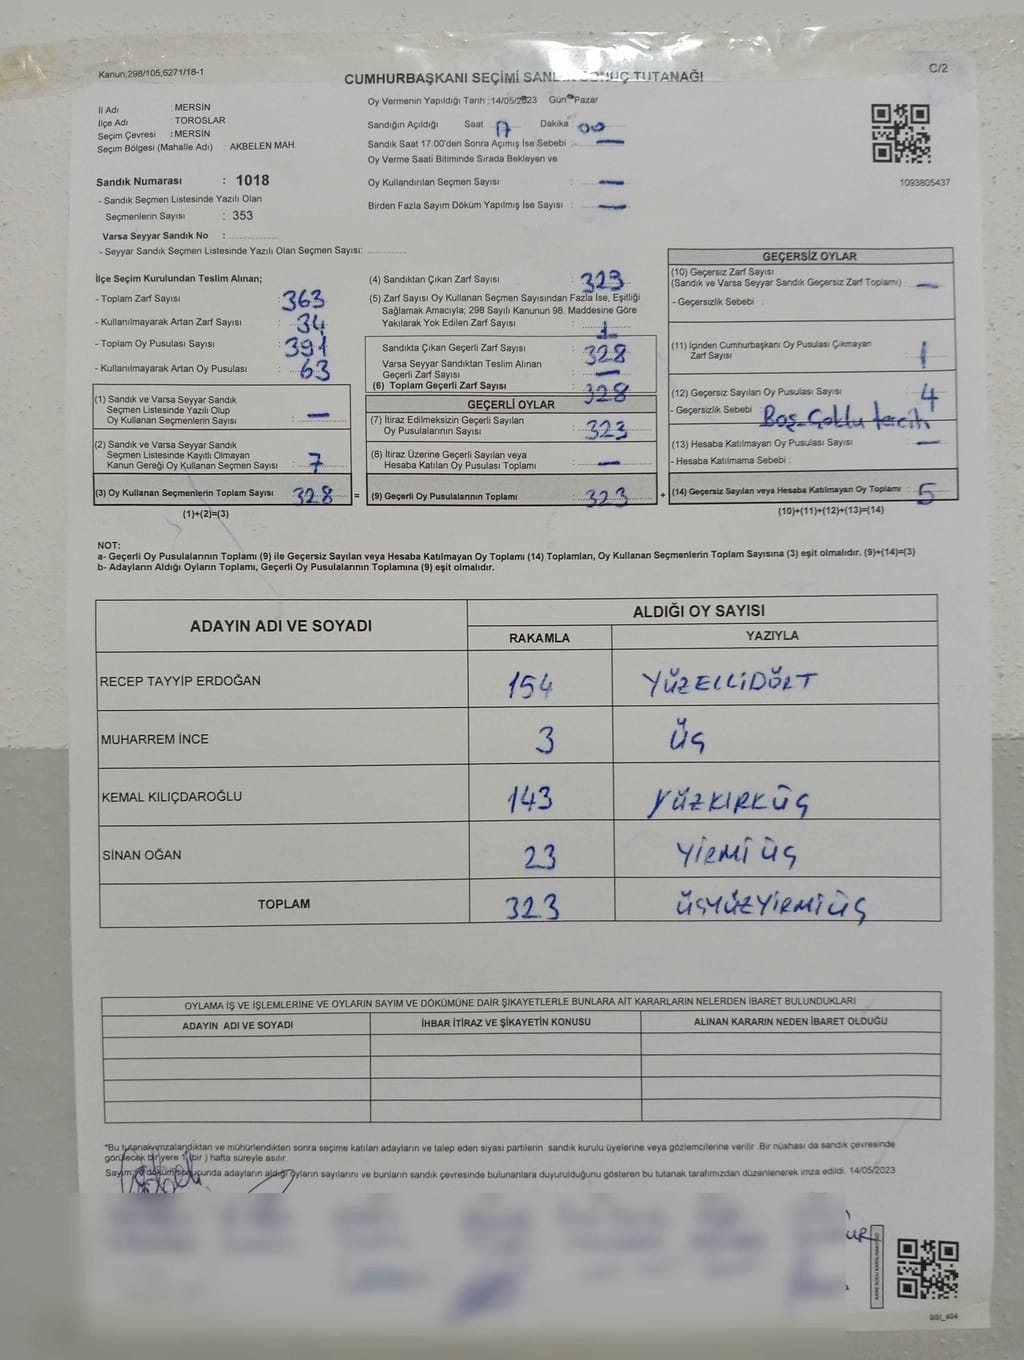 Kanun;298/105,6271/18-1
C/2
CUMHURBAŞKANI SEÇİMİ SANDIK SONUÇ TUTANAĞI
İl Adı : MERSİN
İlçe Adı : TOROSLAR
Seçim Çevresi : MERSİN
Seçim Bölgesi (Mahalle Adı) : AKBELEN MAH.
Oy Vermenin Yapıldığı Tarih : 14/05/2023 Gün Pazar
Sandığın Açıldığı Saat : 17 Dakika : 00
Sandık Saat 17:00'den Sonra Açımış İse Sebebi : —
Oy Verme Saati Bitiminde Sırada Bekleyen ve
Oy Kullandırılan Seçmen Sayısı : —
Birden Fazla Sayım Döküm Yapılmış İse Sayısı : —
1093805437
Sandık Numarası : 1018
- Sandık Seçmen Listesinde Yazılı Olan
Seçmenlerin Sayısı : 353
Varsa Seyyar Sandık No :
- Seyyar Sandık Seçmen Listesinde Yazılı Olan Seçmen Sayısı:
İlçe Seçim Kurulundan Teslim Alınan;
- Toplam Zarf Sayısı : 363
- Kullanılmayarak Artan Zarf Sayısı : 34
- Toplam Oy Pusulası Sayısı : 391
- Kullanılmayarak Artan Oy Pusulası : 63
(1) Sandık ve Varsa Seyyar Sandık
Seçmen Listesinde Yazılı Olup
Oy Kullanan Seçmenlerin Sayısı : —
(2) Sandık ve Varsa Seyyar Sandık
Seçmen Listesinde Kayıtlı Olmayan
Kanun Gereği Oy Kullanan Seçmen Sayısı : 7
(3) Oy Kullanan Seçmenlerin Toplam Sayısı : 328
(1)+(2)=(3)
(4) Sandıktan Çıkan Zarf Sayısı : 323
(5) Zarf Sayısı Oy Kullanan Seçmen Sayısından Fazla İse, Eşitliği
Sağlamak Amacıyla; 298 Sayılı Kanunun 98. Maddesine Göre
Yakılarak Yok Edilen Zarf Sayısı : 1
Sandıkta Çıkan Geçerli Zarf Sayısı : 328
Varsa Seyyar Sandıktan Teslim Alınan
Geçerli Zarf Sayısı : —
(6) Toplam Geçerli Zarf Sayısı : 328
GEÇERLİ OYLAR
(7) İtiraz Edilmeksizin Geçerli Sayılan
Oy Pusulalarının Sayısı : 323
(8) İtiraz Üzerine Geçerli Sayılan veya
Hesaba Katılan Oy Pusulası Toplamı : —
= (9) Geçerli Oy Pusulalarının Toplamı : 323 +
GEÇERSİZ OYLAR
(10) Geçersiz Zarf Sayısı
(Sandık ve Varsa Seyyar Sandık Geçersiz Zarf Toplamı) : —
- Geçersizlik Sebebi :
(11) İçinden Cumhurbaşkanı Oy Pusulası Çıkmayan
Zarf Sayısı : 1
(12) Geçersiz Sayılan Oy Pusulası Sayısı : 4
- Geçersizlik Sebebi : Boş-Çoklu tercih
(13) Hesaba Katılmayan Oy Pusulası Sayısı : —
- Hesaba Katılmama Sebebi :
(14) Geçersiz Sayılan veya Hesaba Katılmayan Oy Toplamı : 5
(10)+(11)+(12)+(13)=(14)
NOT:
a- Geçerli Oy Pusulalarının Toplamı (9) ile Geçersiz Sayılan veya Hesaba Katılmayan Oy Toplamı (14) Toplamları, Oy Kullanan Seçmenlerin Toplam Sayısına (3) eşit olmalıdır. (9)+(14)=(3)
b- Adayların Aldığı Oyların Toplamı, Geçerli Oy Pusulalarının Toplamına (9) eşit olmalıdır.
ADAYIN ADI VE SOYADI ALDIĞI OY SAYISI
RAKAMLA YAZIYLA
RECEP TAYYİP ERDOĞAN 154 YÜZELLİDÖRT
MUHARREM İNCE 3 ÜÇ
KEMAL KILIÇDAROĞLU 143 YÜZKIRKÜÇ
SİNAN OĞAN 23 YİRMİ ÜÇ
TOPLAM 323 ÜÇYÜZYİRMİÜÇ
OYLAMA İŞ VE İŞLEMLERİNE VE OYLARIN SAYIM VE DÖKÜMÜNE DAİR ŞİKAYETLERLE BUNLARA AİT KARARLARIN NELERDEN İBARET BULUNDUKLARI
ADAYIN ADI VE SOYADI İHBAR İTİRAZ VE ŞİKAYETİN KONUSU ALINAN KARARIN NEDEN İBARET OLDUĞU
*Bu tutanak imzalandıktan ve mühürlendikten sonra seçime katılan adayların ve talep eden siyasi partilerin sandık kurulu üyelerine veya gözlemcilerine verilir. Bir nüshası da sandık çevresinde
görülecek bir yere 1 (bir) hafta süreyle asılır.
Sayım ve döküm sonucunda adayların aldığı oyların sayılarını ve bunların sandık çevresinde bulunanlara duyurulduğunu gösteren bu tutanak tarafımızdan düzenlenerek imza edildi. 14/05/2023
GSI_404